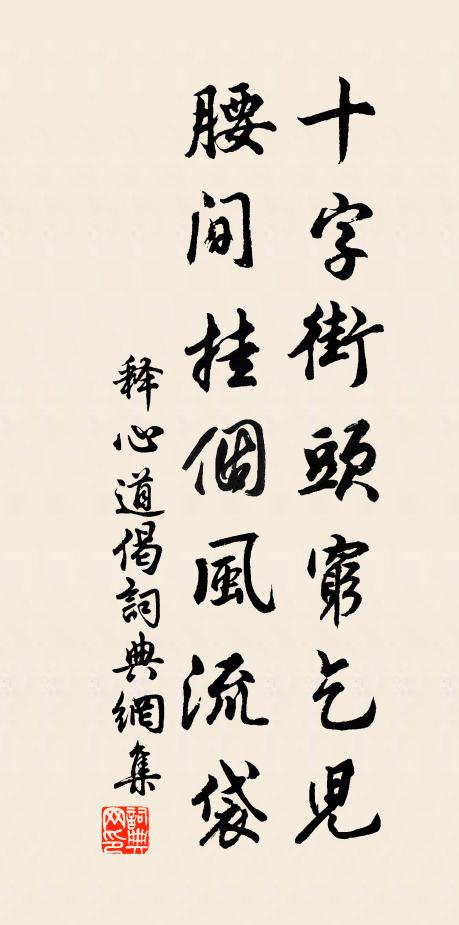 十字街頭窮乞児
腰间挂個風流袋
释心道偈詞典網集
詞典网印